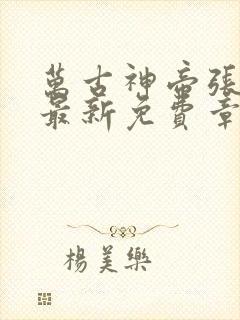 萬古神帝張
最新免費章
楊美樂